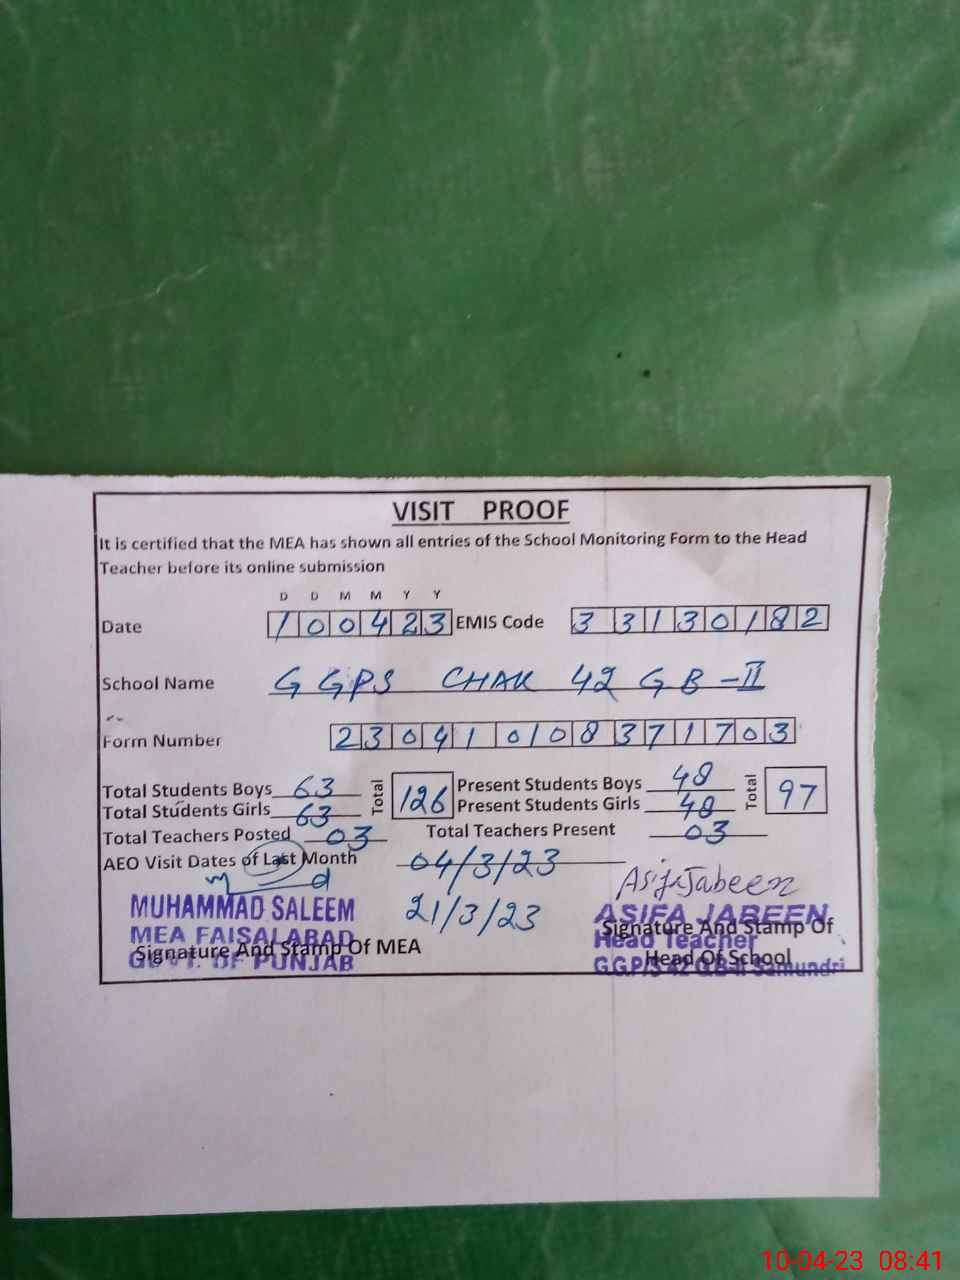 VISIT PROOF
It is certified that the MEA has shown all entries of the School Monitoring Form to the Head
Teacher before its online submission
D D M M Y Y
Date 100423 EMIS Code 33130182
School Name GGPS CHAK 42 GB-II
Form Number 230410108371703
Total Students Boys 63 Total 126 Present Students Boys 48 Total 97
Total Students Girls 63 Present Students Girls 48
Total Teachers Posted 03 Total Teachers Present 03
AEO Visit Dates of Last Month 04/3/23
21/3/23
Asifa Jabeen
MUHAMMAD SALEEM
MEA FAISALABAD
GOVT. OF PUNJAB
Signature And Stamp Of MEA
ASIFA JABEEN
Head Teacher
G.G.P/S 42 G.B-II Samundri
Signature And Stamp Of
Head Of School
10-04-23 08:41